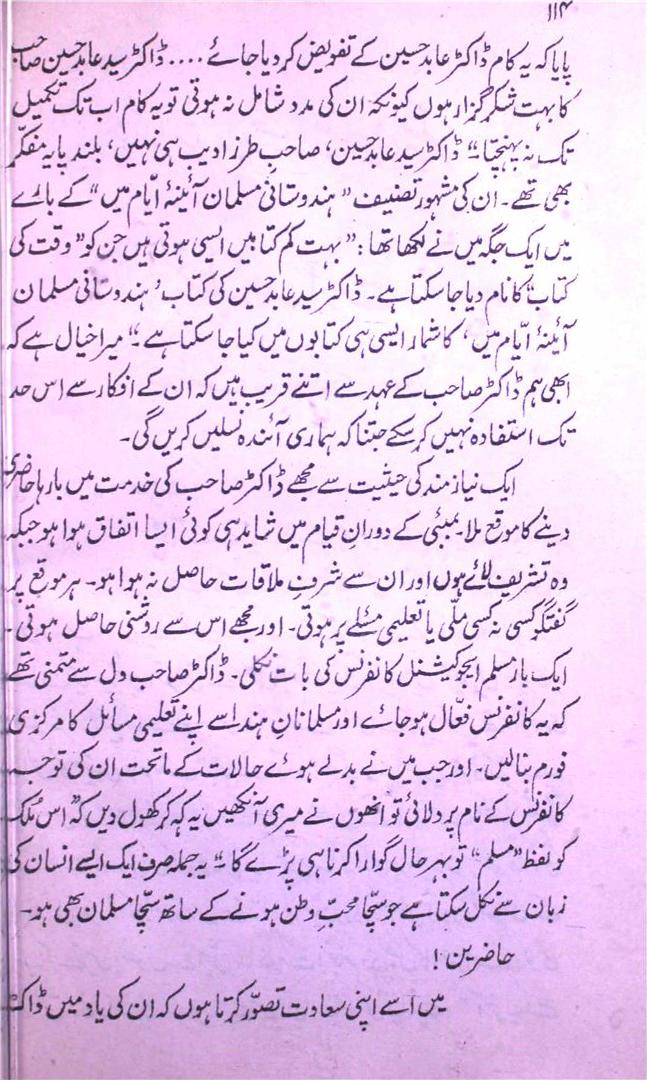 ۱۱۴
پایا کہ یہ کام ڈاکٹر عابد حسین کے تفویض کر دیا جائے .... ڈاکٹر سید عابد حسین صاحب
کا بہت شکر گزار ہوں کیونکہ ان کی مدد شامل نہ ہوتی تو یہ کام اب تک تکمیل
تک نہ پہنچتا۔“ ڈاکٹر سید عابد حسین، صاحبِ طرز ادیب ہی نہیں، بلند پایہ مفکّر
بھی تھے۔ ان کی مشہور تصنیف ”ہندوستانی مسلمان آئینۂ ایّام میں“ کے بارے
میں ایک جگہ میں نے لکھا تھا: ”بہت کم کتابیں ایسی ہوتی ہیں جن کو ”وقت کی
کتاب“ کا نام دیا جا سکتا ہے۔ ڈاکٹر سید عابد حسین کی کتاب ’ہندوستانی مسلمان
آئینۂ ایّام میں‘، کا شمار ایسی ہی کتابوں میں کیا جا سکتا ہے۔“ میرا خیال ہے کہ
ابھی ہم ڈاکٹر صاحب کے عہد سے اتنے قریب ہیں کہ ان کے افکار سے اس حد
تک استفادہ نہیں کر سکے جتنا کہ ہماری آئندہ نسلیں کریں گی۔
ایک نیاز مند کی حیثیت سے مجھے ڈاکٹر صاحب کی خدمت میں بارہا حاضری
دینے کا موقع ملا۔ بمبئی کے دورانِ قیام میں شاید ہی کوئی ایسا اتفاق ہوا ہو جبکہ
وہ تشریف لائے ہوں اور ان سے شرفِ ملاقات حاصل نہ ہوا ہو۔ ہر موقع پر
گفتگو کسی نہ کسی ملّی یا تعلیمی مسئلے پر ہوتی۔ اور مجھے اس سے روشنی حاصل ہوتی۔
ایک بار مسلم ایجوکیشنل کانفرنس کی بات نکلی۔ ڈاکٹر صاحب دل سے متمنی تھے
کہ یہ کانفرنس فعّال ہو جائے اور مسلمانانِ ہند اسے اپنے تعلیمی مسائل کا مرکزی
فورم بنالیں۔ اور جب میں نے بدلے ہوئے حالات کے ماتحت ان کی توجہ
کانفرنس کے نام پر دلائی تو انھوں نے میری آنکھیں یہ کہہ کر کھول دیں کہ ”اس مُلک
کو لفظ ”مسلم“ تو بہر حال گوارا کرنا ہی پڑے گا۔“ یہ جملہ صرف ایک ایسے انسان کی
زبان سے نکل سکتا ہے جو سچّا محبِّ وطن ہونے کے ساتھ سچّا مسلمان بھی ہو۔
حاضرین!
میں اسے اپنی سعادت تصوّر کرتا ہوں کہ ان کی یاد میں ڈاکٹر